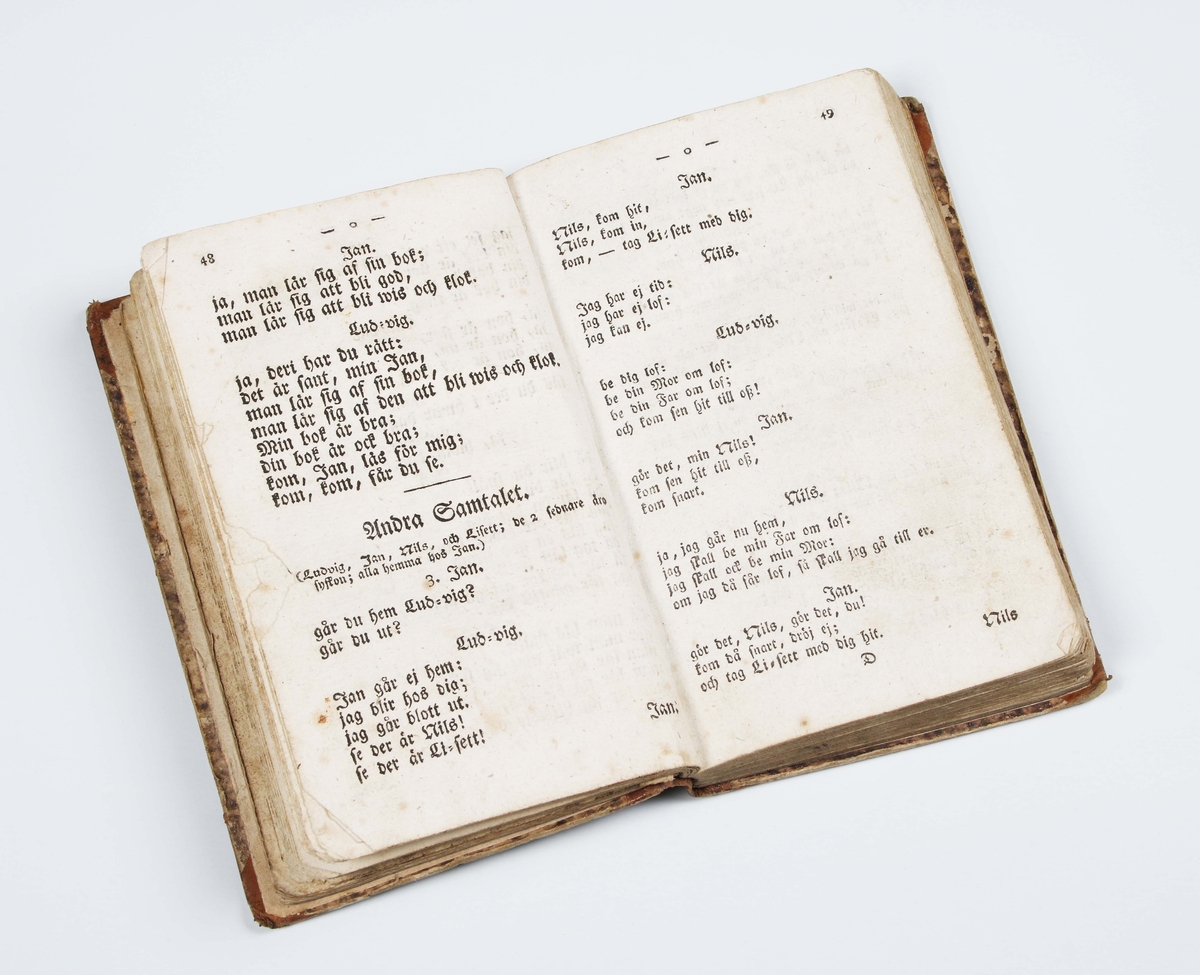 48
— o —
Jan.
ja, man lär sig af sin bok;
man lär sig att bli god,
man lär sig att bli wis och klok.
Lud=vig.
ja, deri har du rätt:
det är sant, min Jan,
man lär sig af sin bok,
man lär sig af den att bli wis och klok.
Min bok är bra;
din bok är ock bra;
kom, Jan, läs för mig;
kom, kom, får du se.
Andra Samtalet.
(Ludvig, Jan, Nils, och Lisett; de 2 sednare äro
syskon; alla hemma hos Jan.)
3. Jan.
går du hem Lud=vig?
går du ut?
Lud=vig.
Jan går ej hem:
jag blir hos dig;
jag går blott ut.
se der är Nils!
se der är Li=sett!
Jan.
49
— o —
Jan.
Nils, kom hit,
Nils, kom in,
kom, — tag Li=sett med dig:
Nils.
Jag har ej tid:
jag har ej lof:
jag kan ej.
Lud=vig.
be dig lof:
be din Mor om lof:
be din Far om lof;
och kom sen hit till oß!
Jan.
gör det, min Nils!
kom sen hit till oß,
kom snart.
Nils.
ja, jag går nu hem,
jag skall be min Far om lof:
jag skall ock be min Mor:
om jag då får lof, så skall jag gå till er.
Jan.
gör det, Nils, gör det, du!
kom då snart, dröj ej;
och tag Li=sett med dig hit.
D
Nils